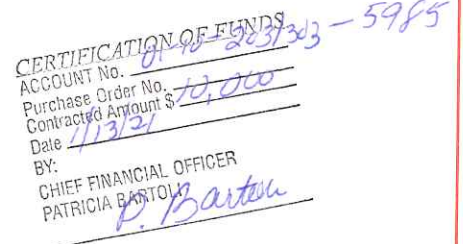 CERTIFICATION OF FUNDS
ACCOUNT No. 01-10-203/303-5985
Purchase Order No.
Contracted Amount $ 10,000
Date 1/13/21
BY:
CHIEF FINANCIAL OFFICER
PATRICIA BARTOLI
P. Bartoli